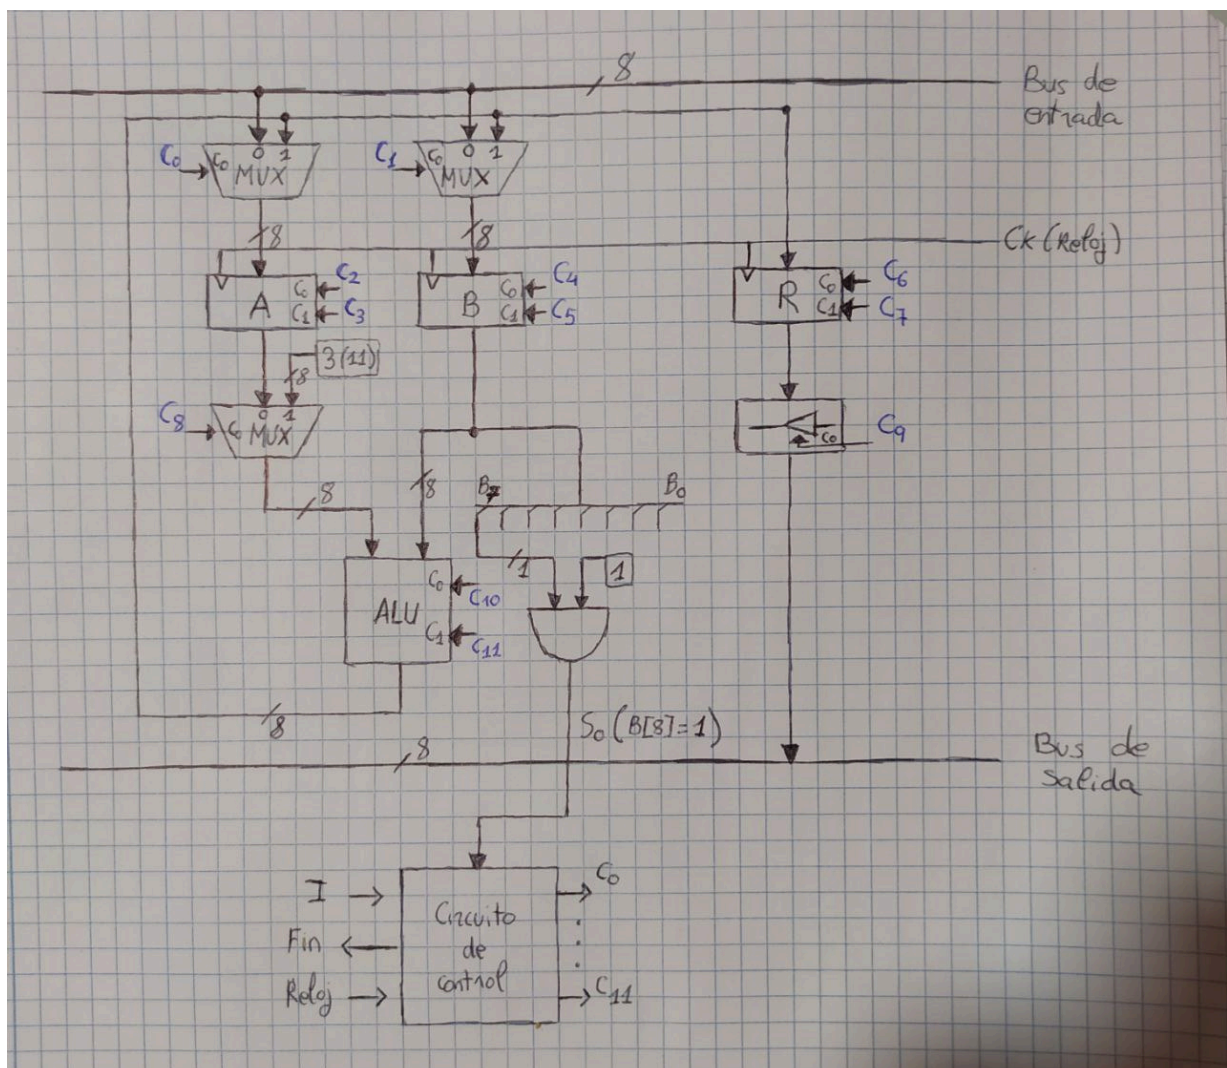 8
Bus de
entrada
C0 C0 0 1
MUX
C1 C0 0 1
MUX
8 8
CK (Reloj)
A C0 C2
C1 C3
B C0 C4
C1 C5
R C0 C6
C1 C7
3(11)
8
C8 C0 0 1
MUX
C0 C9
8 8
B7 B0
1 1
ALU C0 C10
C1 C11
8
S0 (B[8]=1)
8
Bus de
Salida
I
Fin
Reloj
Circuito
de
control
C0
C11